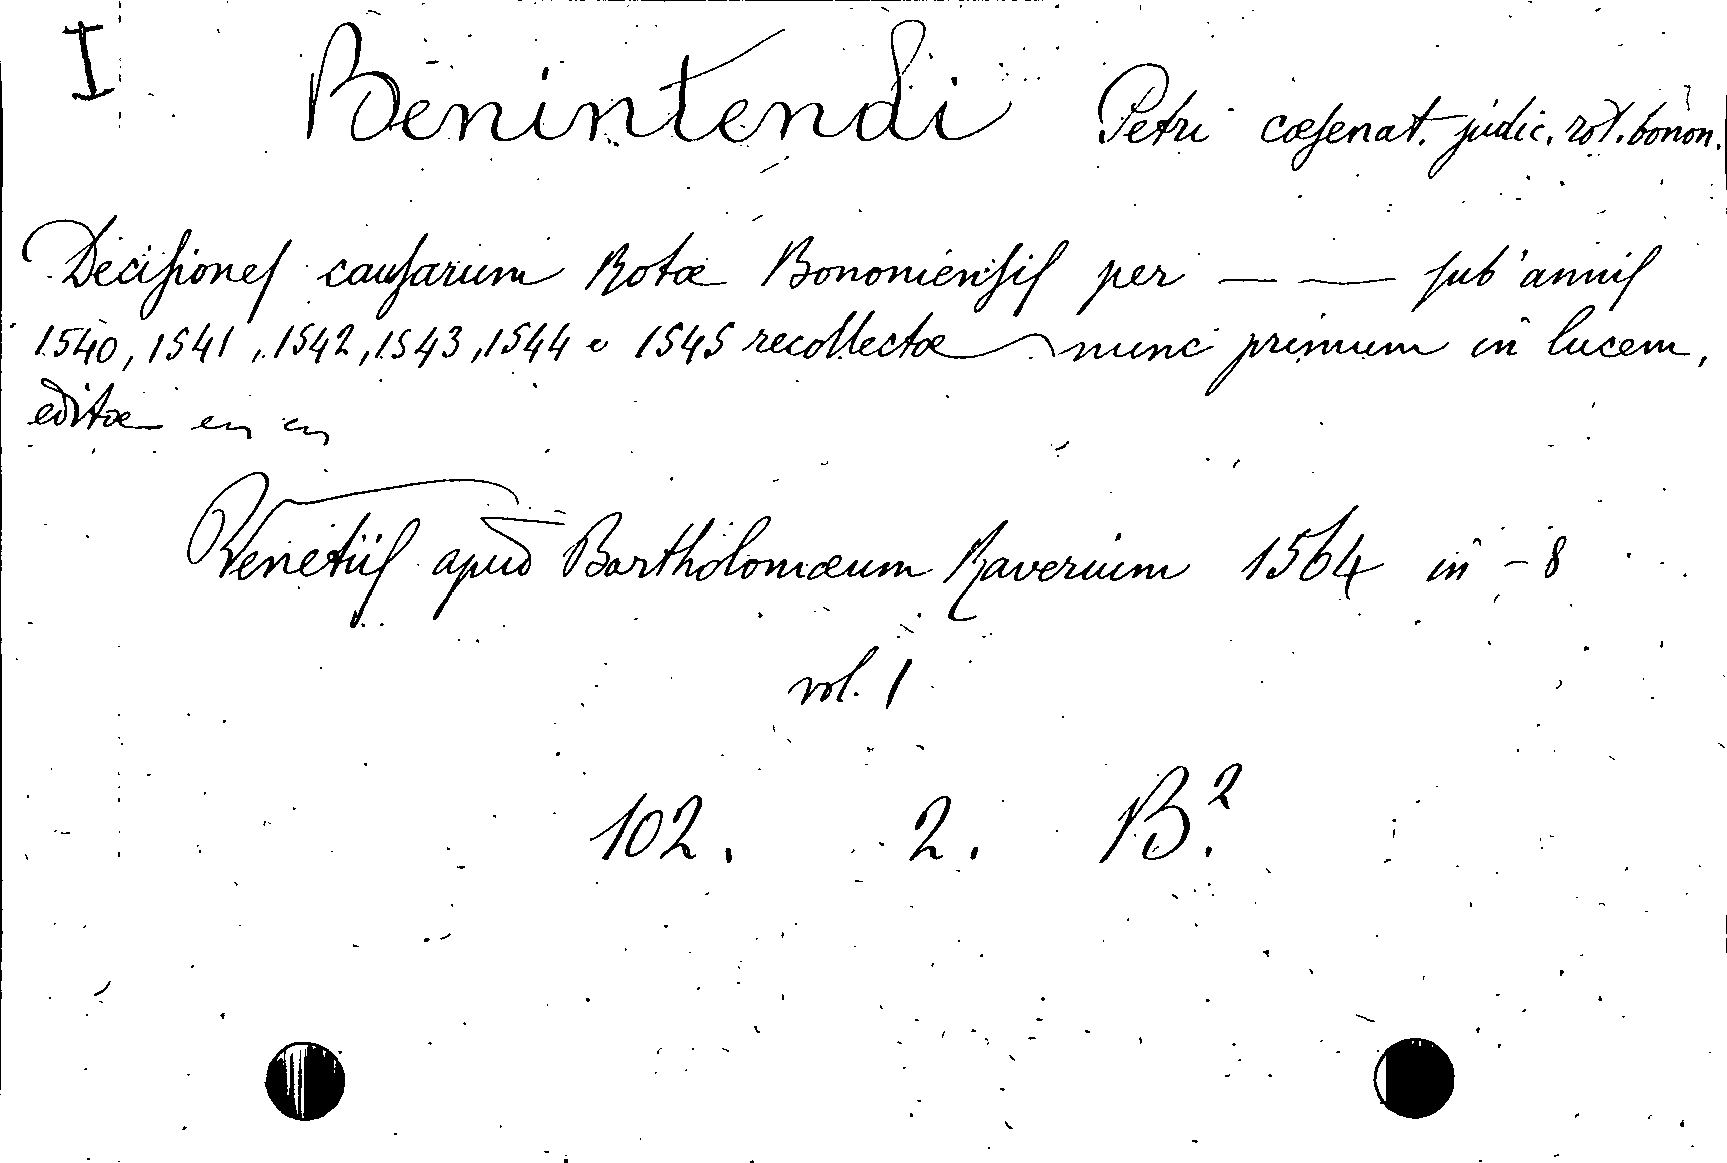 I Benintendi Petri cæsenat. judic. rot. bonon.
Decisiones causarum Rotæ Bononiensis per — — sub annis
1540, 1541, 1542, 1543, 1544 e 1545 recollectæ nunc primum in lucem,
editæ
Venetiis apud Bartholomæum Raverium 1564 in - 8
vol. 1
102. 2. B.²